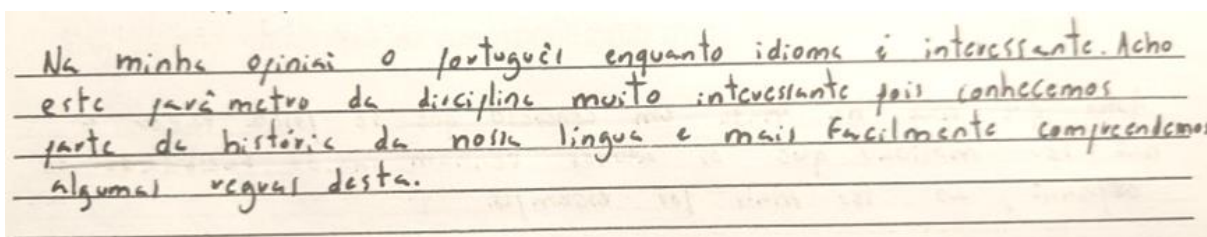 Na minha opinião o português enquanto idioma é interessante. Acho
este parâmetro da disciplina muito interessante pois conhecemos
parte da história da nossa língua e mais facilmente compreendemos
algumas regras desta.